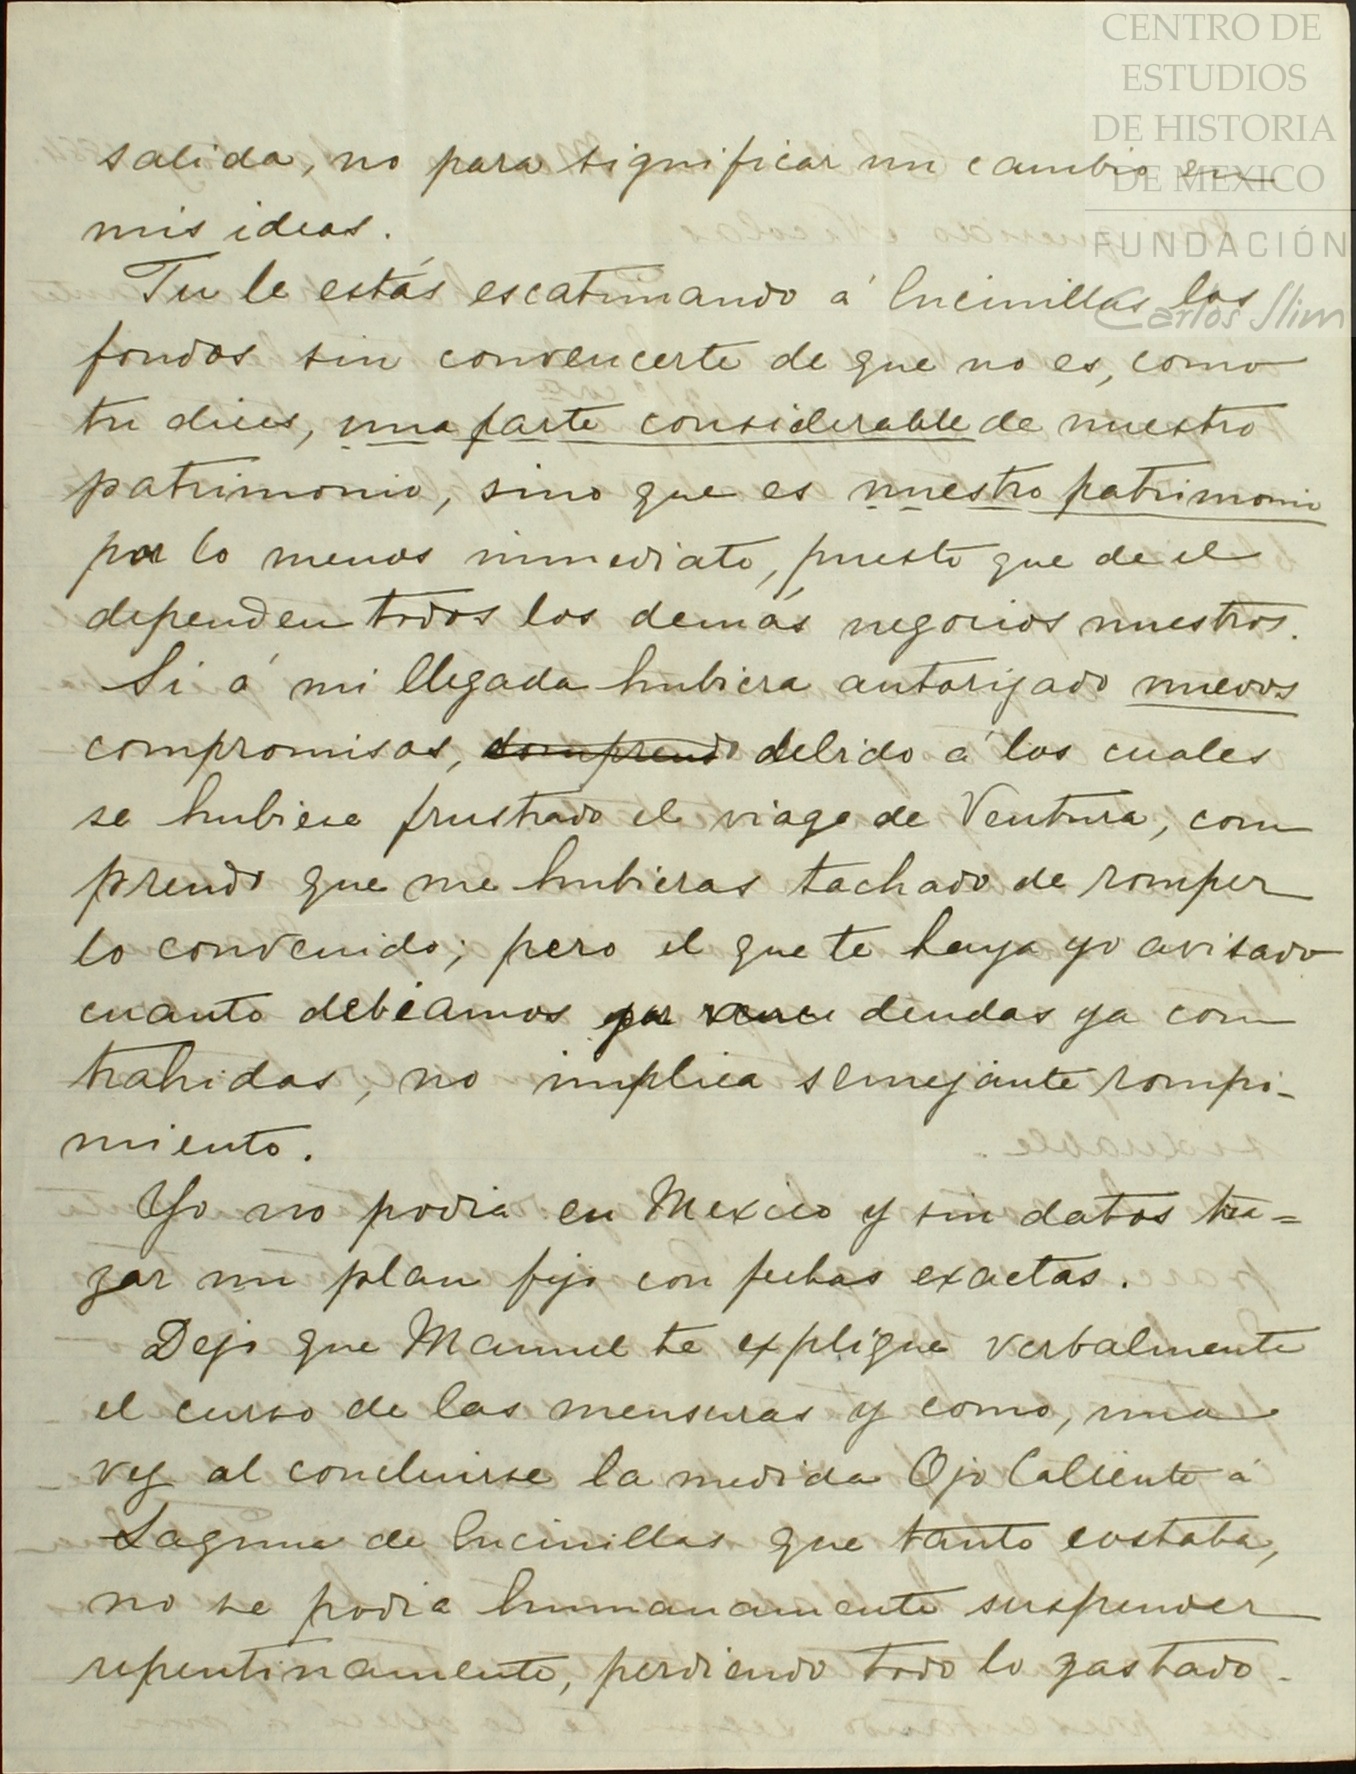 CENTRO DE
ESTUDIOS
DE HISTORIA
DE MEXICO
FUNDACIÓN
Carlos Slim
salida, no para significar un cambio en
mis ideas.
Tu le estás escatimando á Encinillas los
fondos sin convencerte de que no es, como
tu dices, una parte considerable de nuestro
patrimonio, sino que es nuestro patrimonio
por lo menos inmediato, puesto que de el
dependen todos los demás negocios nuestros.
Si á mi llegada hubiera autorizado nuevos
compromisos, comprendo debido á los cuales
se hubiese frustrado el viage de Ventura, com
prendo que me hubieras tachado de romper
lo convenido; pero el que te haya yo avisado
cuanto debíamos por deudas ya con
trahidas, no implica semejante rompi-
miento.
Yo no podia en Mexico y sin datos tra=
zar un plan fijo con fechas exactas.
Dejo que Manuel te explique verbalmente
el curso de las mensuras y como, una
vez al concluirse la medida Ojo Caliente á
Laguna de Encinillas que tanto costaba,
no se podia humanamente suspender
repentinamente, perdiendo todo lo gastado.